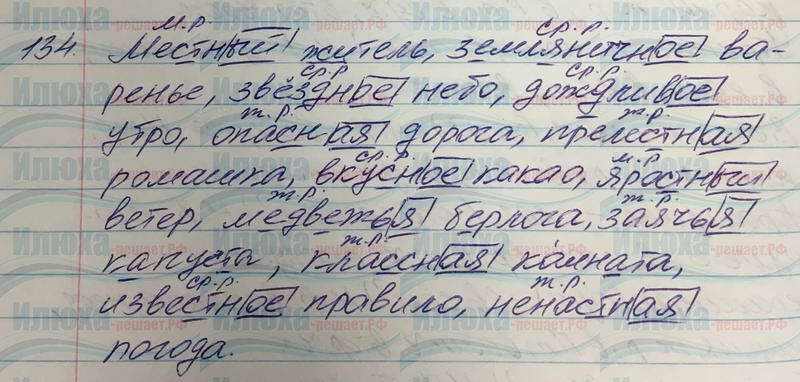 м.р. ср.р.
134. Местный житель, земляничное ва-
ср.р ср.р.
ренье, звёздное небо, дождливое
ж.р. ж.р.
утро, опасная дорога, прелестная
ср.р. м.р.
ромашка, вкусное какао, яростный
ж.р. ж.р.
ветер, медвежья берлога, заячья
ж.р.
капуста, классная комната,
ср.р. ж.р.
известное правило, ненастная
погода.
Илюха-решает.рф